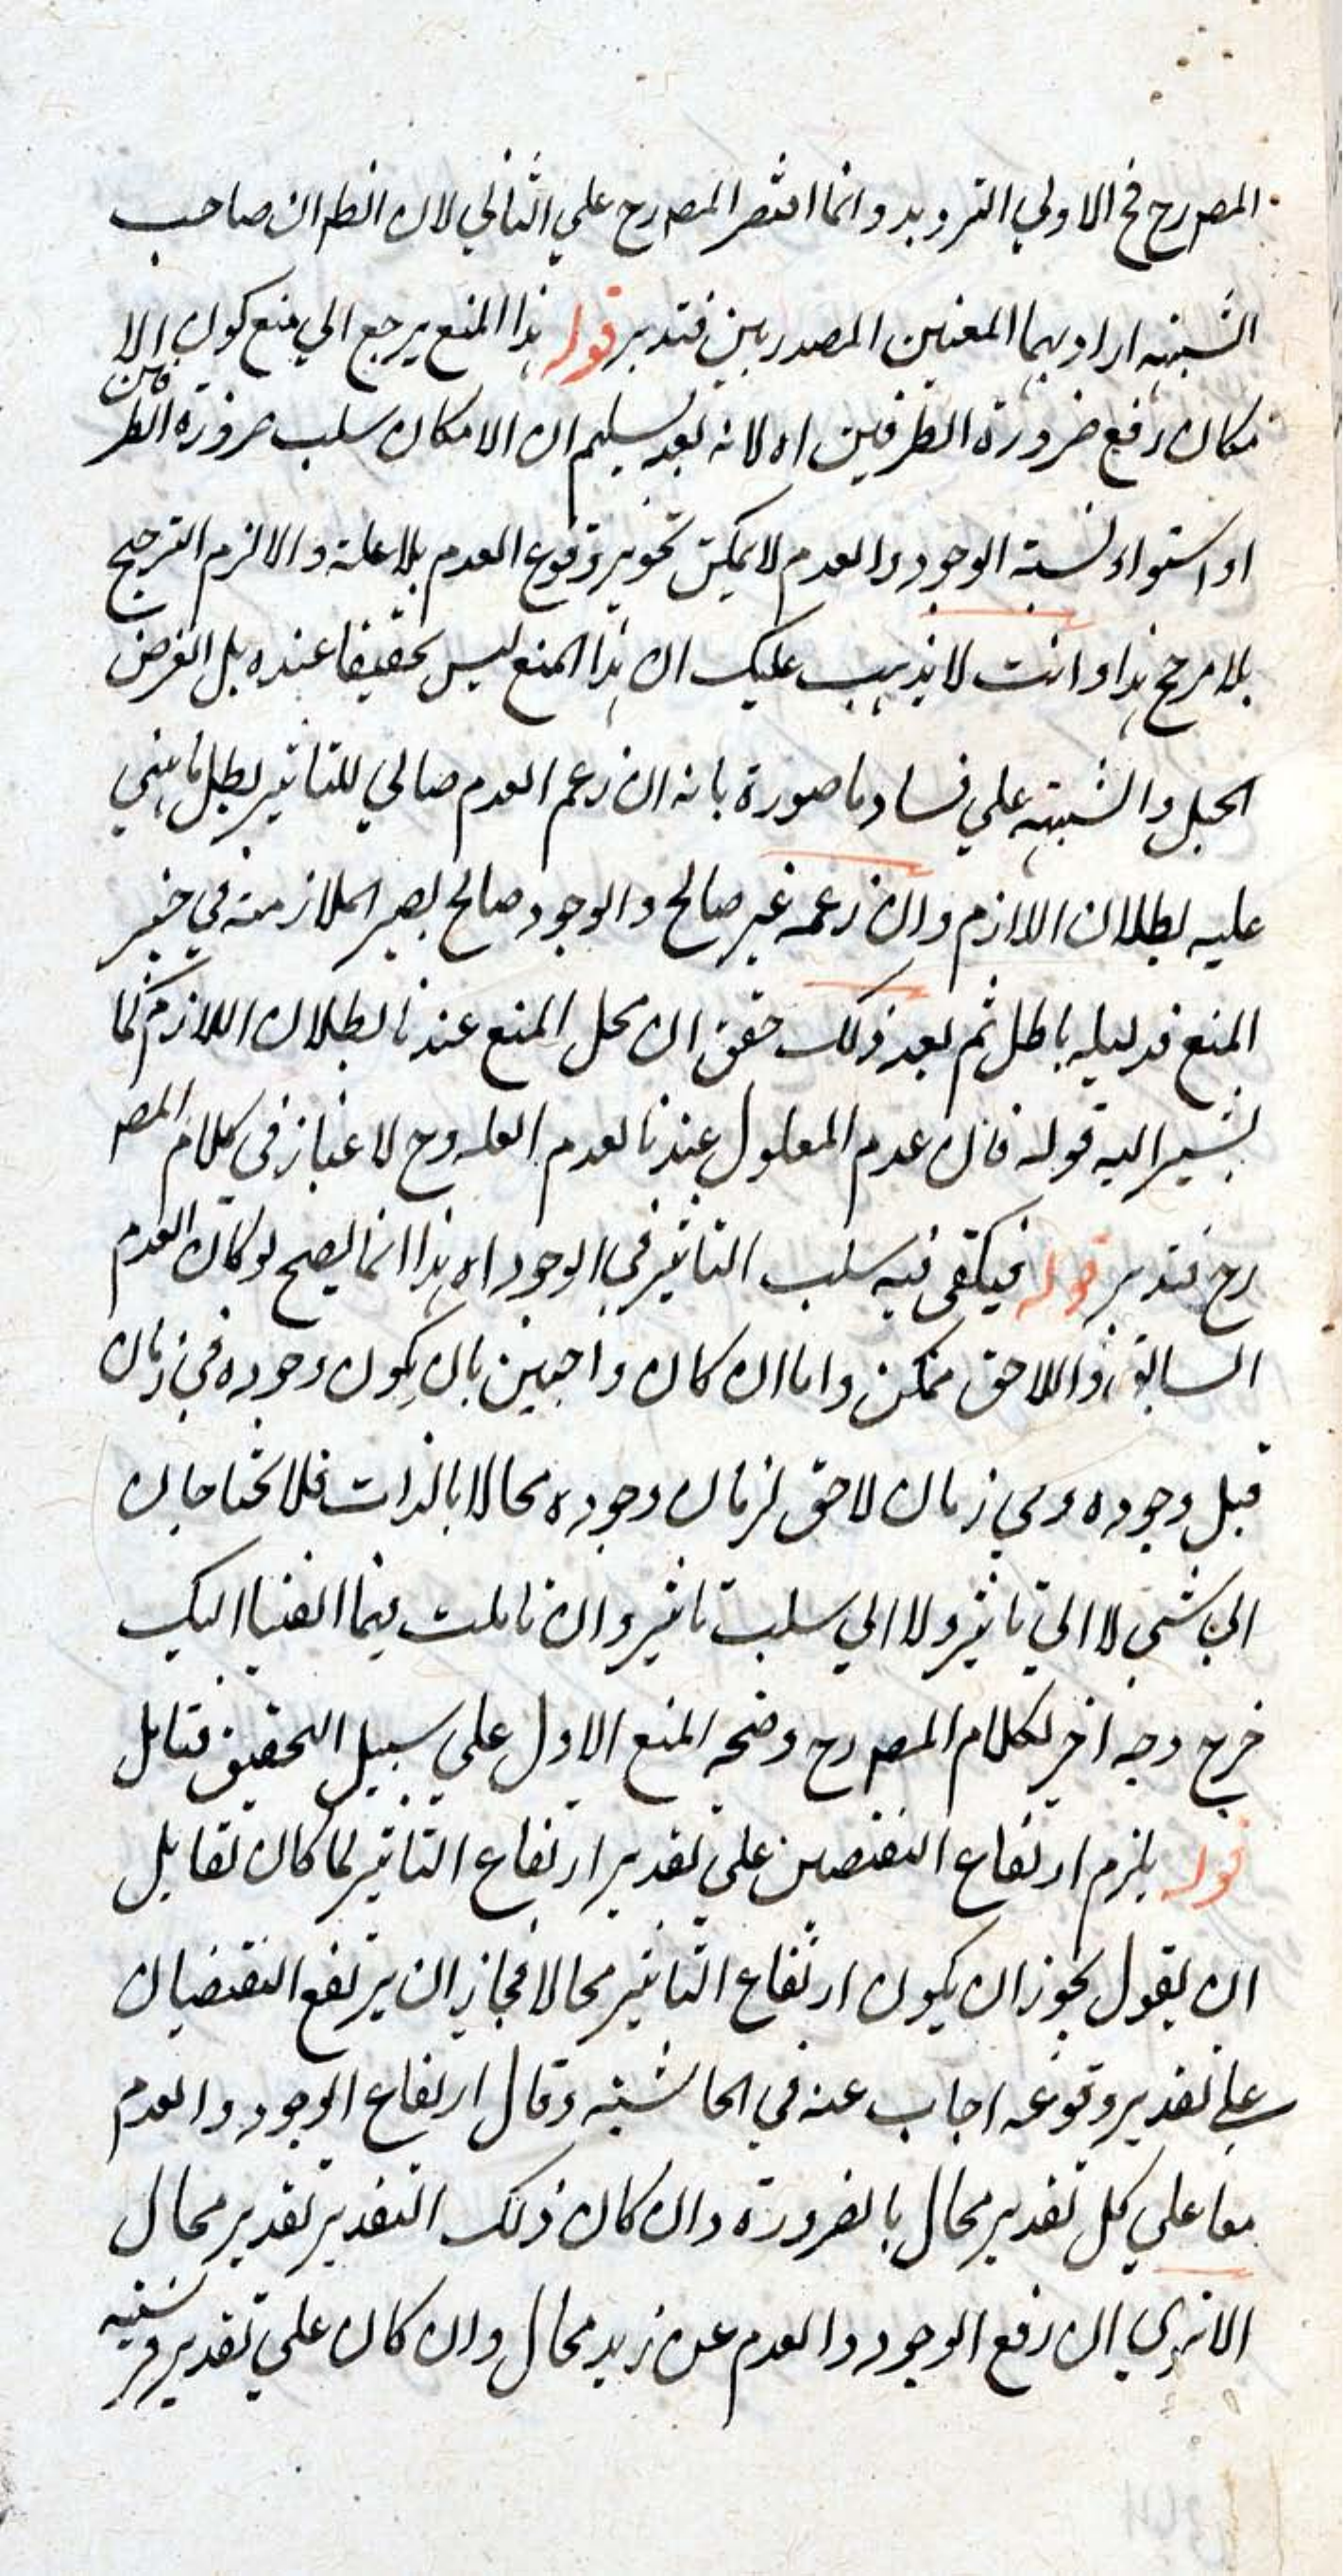 المصرح في الاولي الترديد وانما اقتصر المصرح علي الثاني لان الظ ان صاحب
الشبهة اراد بهما المعنيين المصدريين فتدبر قوله هذا المنع يرجع الي منع كون الا
مكان رفع ضرورة الطرفين اه لانه بعد تسليم ان الامكان سلب ضرورة الطرفين
او استواء نسبة الوجود والعدم لا يمكن تجويز وقوع العدم بلا علة والا لزم الترجيح
بلا مرجح هذا وانت لا يذهب عليك ان هذا المنع ليس تحقيقا عنده بل الغرض
الحبل والشبهة علي فساد ما صورة بانه ان زعم العدم صالح للتاثير بطل ما بني
عليه بطلان اللازم وان زعمه غير صالح والوجود صالح يصير الملازمة في حيز
المنع فدليله باطل ثم بعد ذلك حقق ان محل المنع عندنا بطلان اللازم كما
يشير اليه قوله فان عدم المعلول عندنا لعدم العلة وح لا غبار في كلام المص
رح فتدبر قوله فيكفي فيه سلب التاثير في الوجود اه هذا انما يصح لو كان العدم
السابق واللاحق ممكن واما ان كان واجبين بان يكون وجوده في زمان
قبل وجوده وفي زمان لاحق لزمان وجوده محالا بالذات فلا يحتاجان
الي شي لا الي تاثير ولا الي سلب تاثير وان تاملت فيما القينا اليك
خرج وجه اخر لكلام المصرح وضحه المنع الاول علي سبيل التحقيق فتامل
قوله يلزم ارتفاع النقيضين علي تقدير ارتفاع التاثير لما كان لقايل
ان يقول يجوز ان يكون ارتفاع التاثير محالا فجاز ان يرتفع النقيضان
علي تقدير وقوعه اجاب عنه في الحاشية وقال ارتفاع الوجود والعدم
معا علي كل تقدير محال بالضرورة وان كان ذلك التقدير تقدير محال
الا تري ان رفع الوجود والعدم عن زيد محال وان كان علي تقدير فرسيته